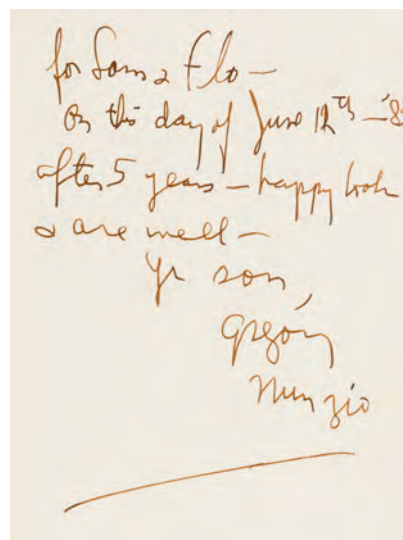 for Sam & Flo —
On this day of June 12th — '8
after 5 years — happy both
& are well —
Yr son,
Gregory
Nunzio